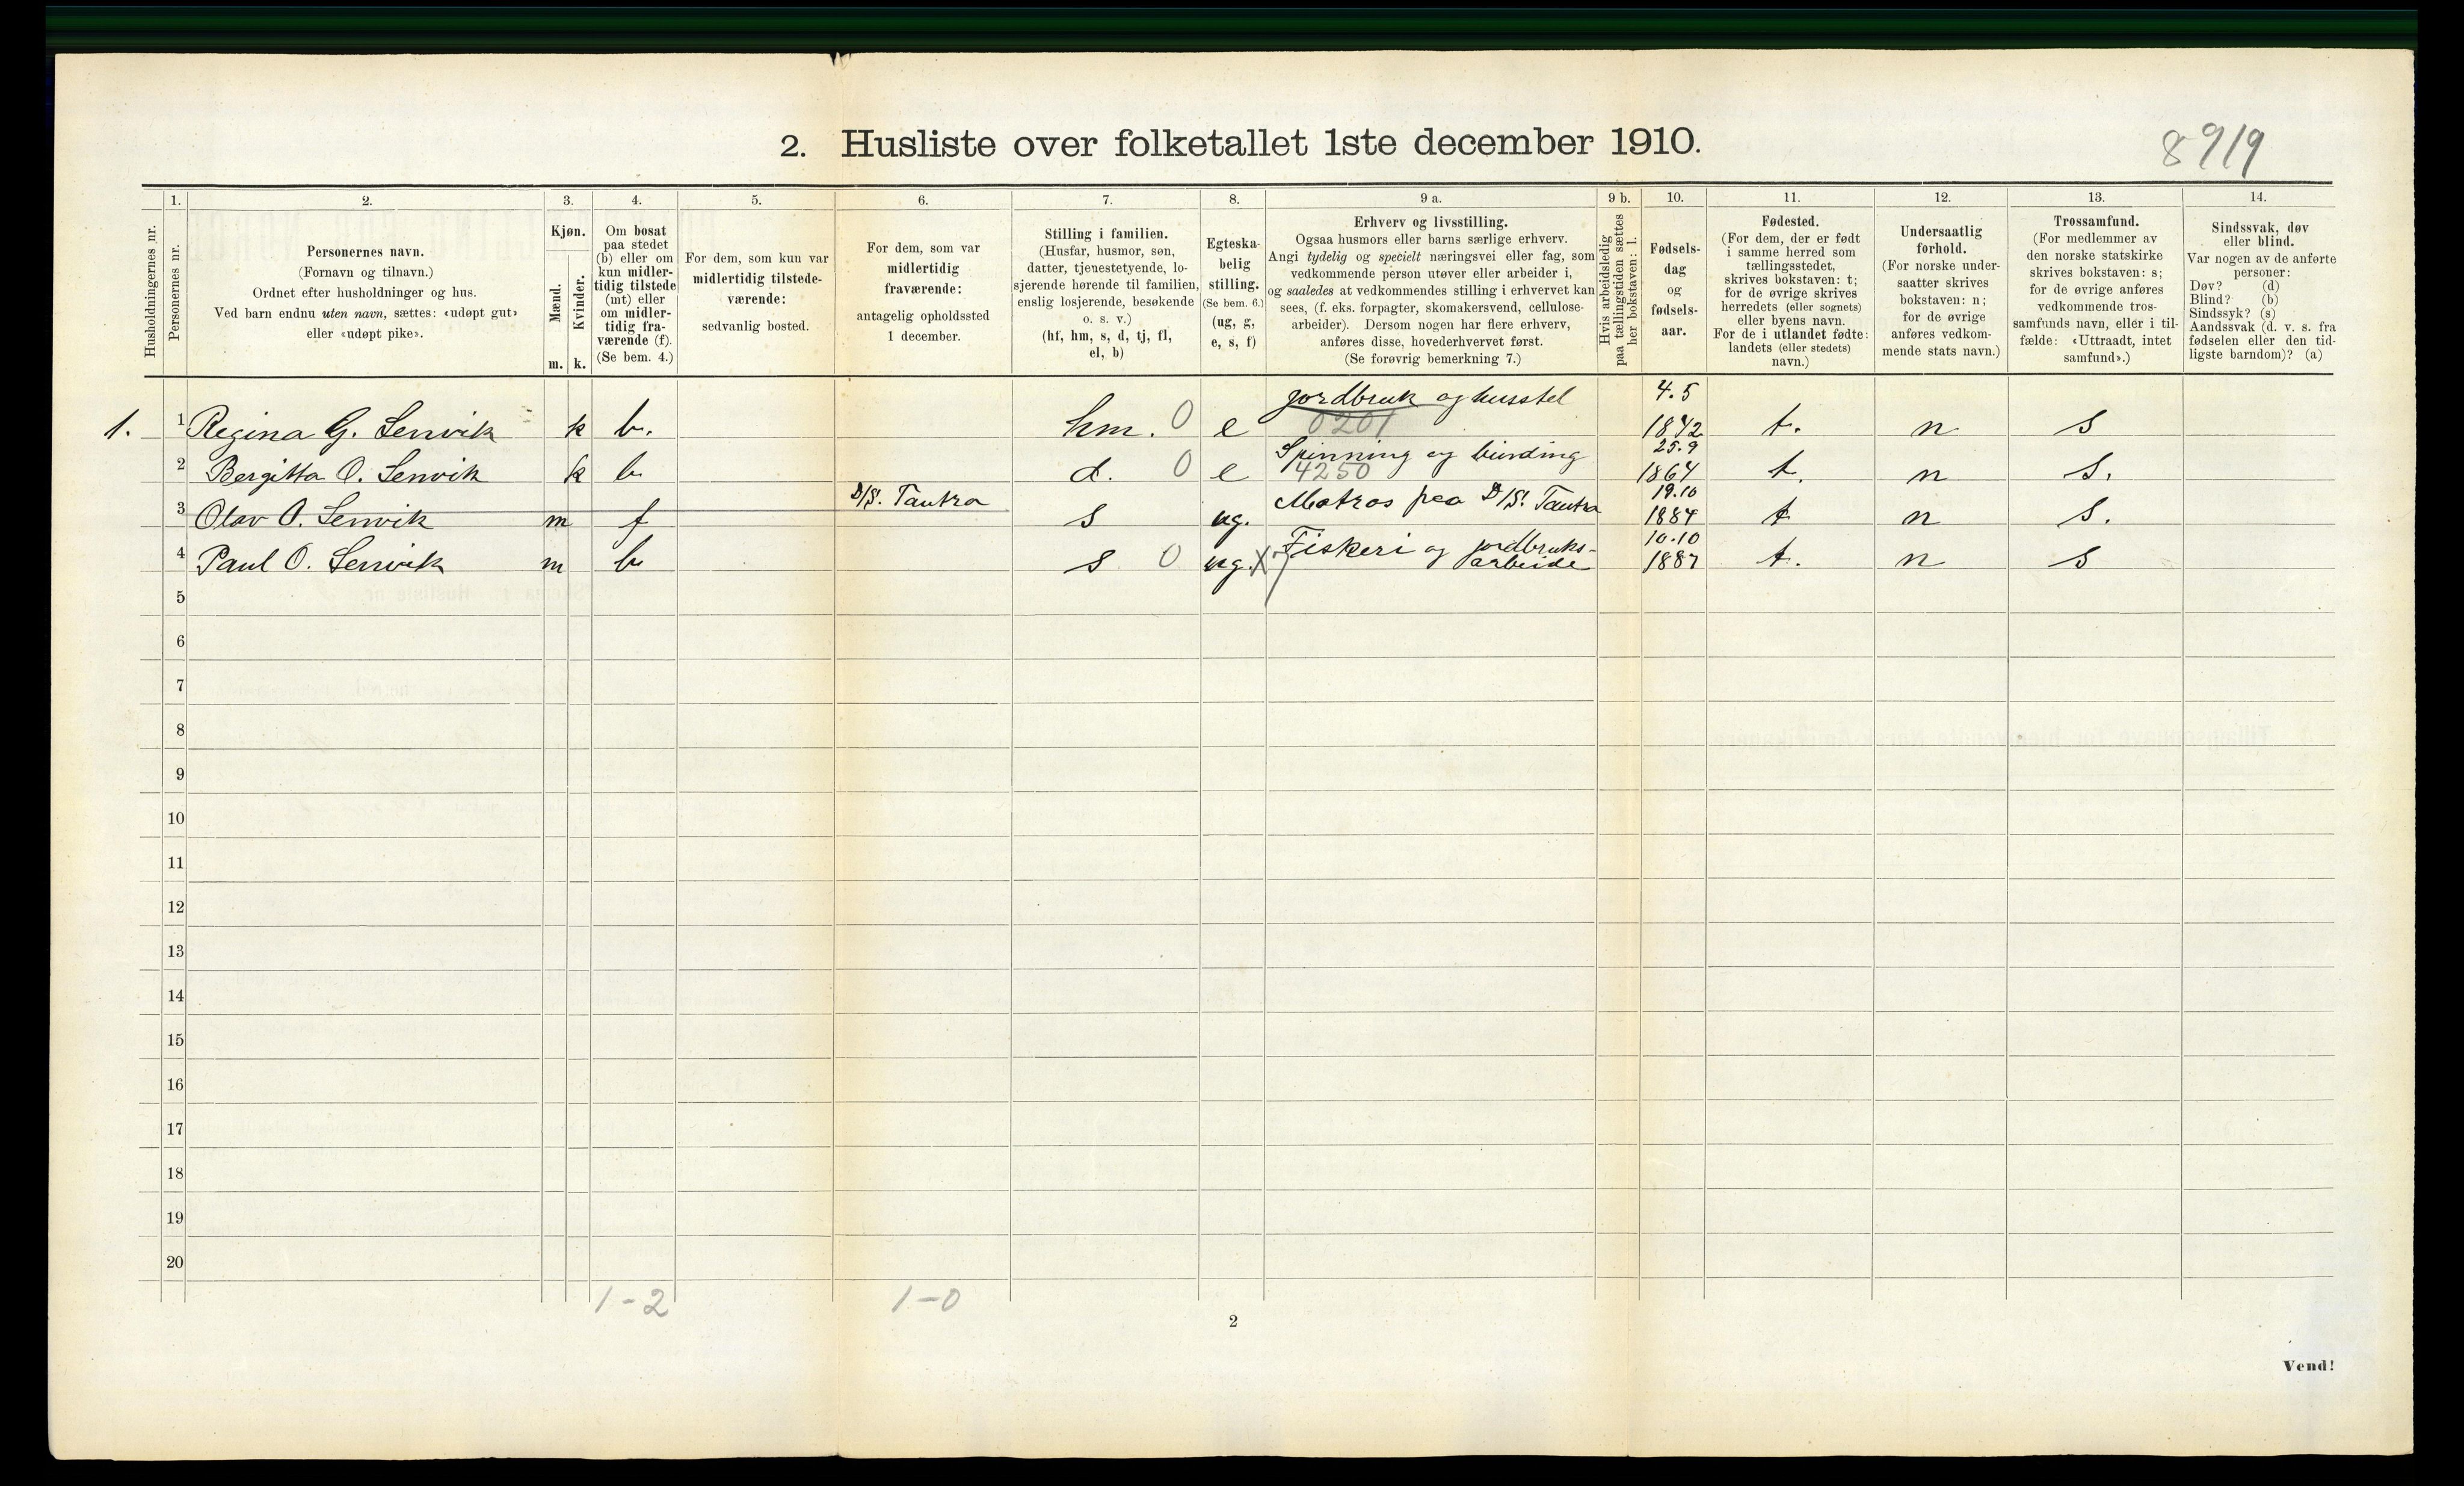 2. Husliste over folketallet 1ste december 1910.
8919
Husholdningernes nr.
1.
Personernes nr.
2.
Personernes navn.
(Fornavn og tilnavn.)
Ordnet efter husholdninger og hus.
Ved barn endnu uten navn, sættes: «udøpt gut»
eller «udøpt pike».
3.
Kjøn.
Mænd.
Kvinder.
m. k.
4.
Om bosat
paa stedet
(b) eller om
kun midler-
tidig tilstede
(mt) eller
om midler-
tidig fra-
værende (f).
(Se bem. 4.)
5.
For dem, som kun var
midlertidig tilstede-
værende:
sedvanlig bosted.
6.
For dem, som var
midlertidig
fraværende:
antagelig opholdssted
1 december.
7.
Stilling i familien.
(Husfar, husmor, søn,
datter, tjenestetyende, lo-
sjerende hørende til familien,
enslig losjerende, besøkende
o. s. v.)
(hf, hm, s, d, tj, fl,
el, b)
8.
Egteska-
belig
stilling.
(Se bem. 6.)
(ug, g,
e, s, f)
9 a.
Erhverv og livsstilling.
Ogsaa husmors eller barns særlige erhverv.
Angi tydelig og specielt næringsvei eller fag, som
vedkommende person utøver eller arbeider i,
og saaledes at vedkommendes stilling i erhvervet kan
sees, (f. eks. forpagter, skomakersvend, cellulose-
arbeider). Dersom nogen har flere erhverv,
anføres disse, hovederhvervet først.
(Se forøvrig bemerkning 7.)
9 b.
Hvis arbeidsledig
paa tællingstiden sættes
her bokstaven: l.
10.
Fødsels-
dag
og
fødsels-
aar.
11.
Fødested.
(For dem, der er født
i samme herred som
tællingsstedet,
skrives bokstaven: t;
for de øvrige skrives
herredets (eller sognets)
eller byens navn.
For de i utlandet fødte:
landets (eller stedets)
navn.)
12.
Undersaatlig
forhold.
(For norske under-
saatter skrives
bokstaven: n;
for de øvrige
anføres vedkom-
mende stats navn.)
13.
Trossamfund.
(For medlemmer av
den norske statskirke
skrives bokstaven: s;
for de øvrige anføres
vedkommende tros-
samfunds navn, eller i til-
fælde: «Uttraadt, intet
samfund».)
14.
Sindssvak, døv
eller blind.
Var nogen av de anførte
personer:
Døv? (d)
Blind? (b)
Sindssyk? (s)
Aandssvak (d. v. s. fra
fødselen eller den tid-
ligste barndom)? (a)
1. 1 Regina G. Senvik k b. hm. 0 e jordbruk og husstel 0201 4.5 1842 t. n s
2 Bergitta O. Senvik k b d. 0 e Spinning og binding 4250 25.9 1864 t. n s.
3 Olav O. Senvik m f D/S! Tautra s ug. Matros paa D/S! Tautra 19.10 1884 t n s.
4 Paul O. Senvik m b s 0 ug. X7 Fiskeri og jordbruks- arbeide 10.10 1887 t. n s
5
6
7
8
9
10
11
12
13
14
15
16
17
18
19
20
1-2 1-0
2
Vend!